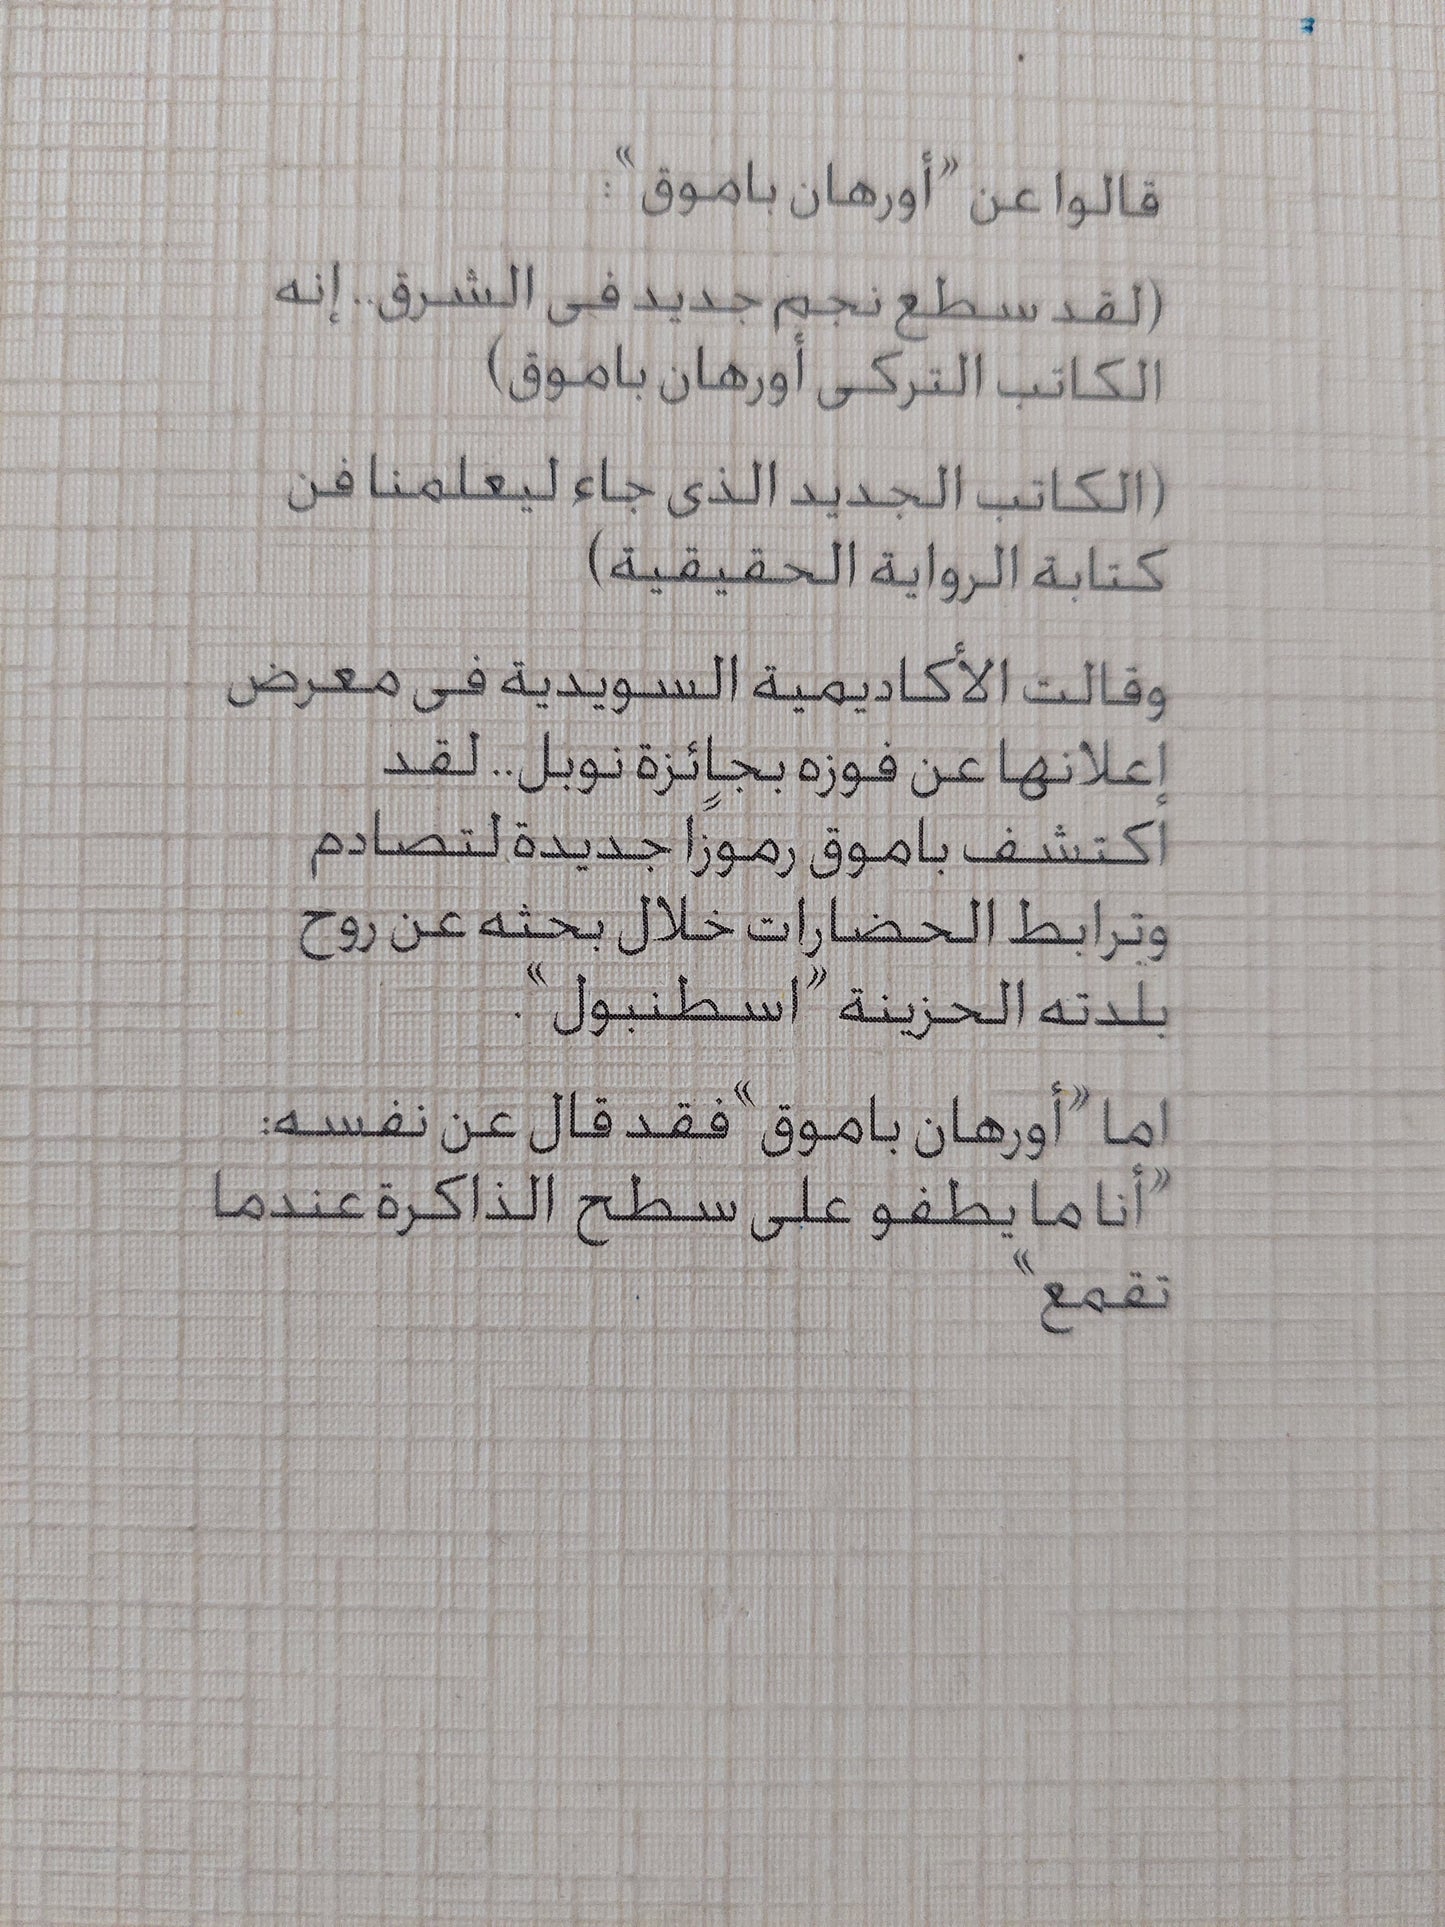 قالوا عن "أورهان باموق":
(لقد سطع نجم جديد فى الشرق.. إنه
الكاتب التركى أورهان باموق)
(الكاتب الجديد الذى جاء ليعلمنا فن
كتابة الرواية الحقيقية)
وقالت الأكاديمية السويدية فى معرض
إعلانها عن فوزه بجائزة نوبل.. لقد
أكتشف باموق رموزًا جديدة لتصادم
وترابط الحضارات خلال بحثه عن روح
بلدته الحزينة "اسطنبول".
اما "أورهان باموق" فقد قال عن نفسه:
"أنا ما يطفو على سطح الذاكرة عندما
تقمع"